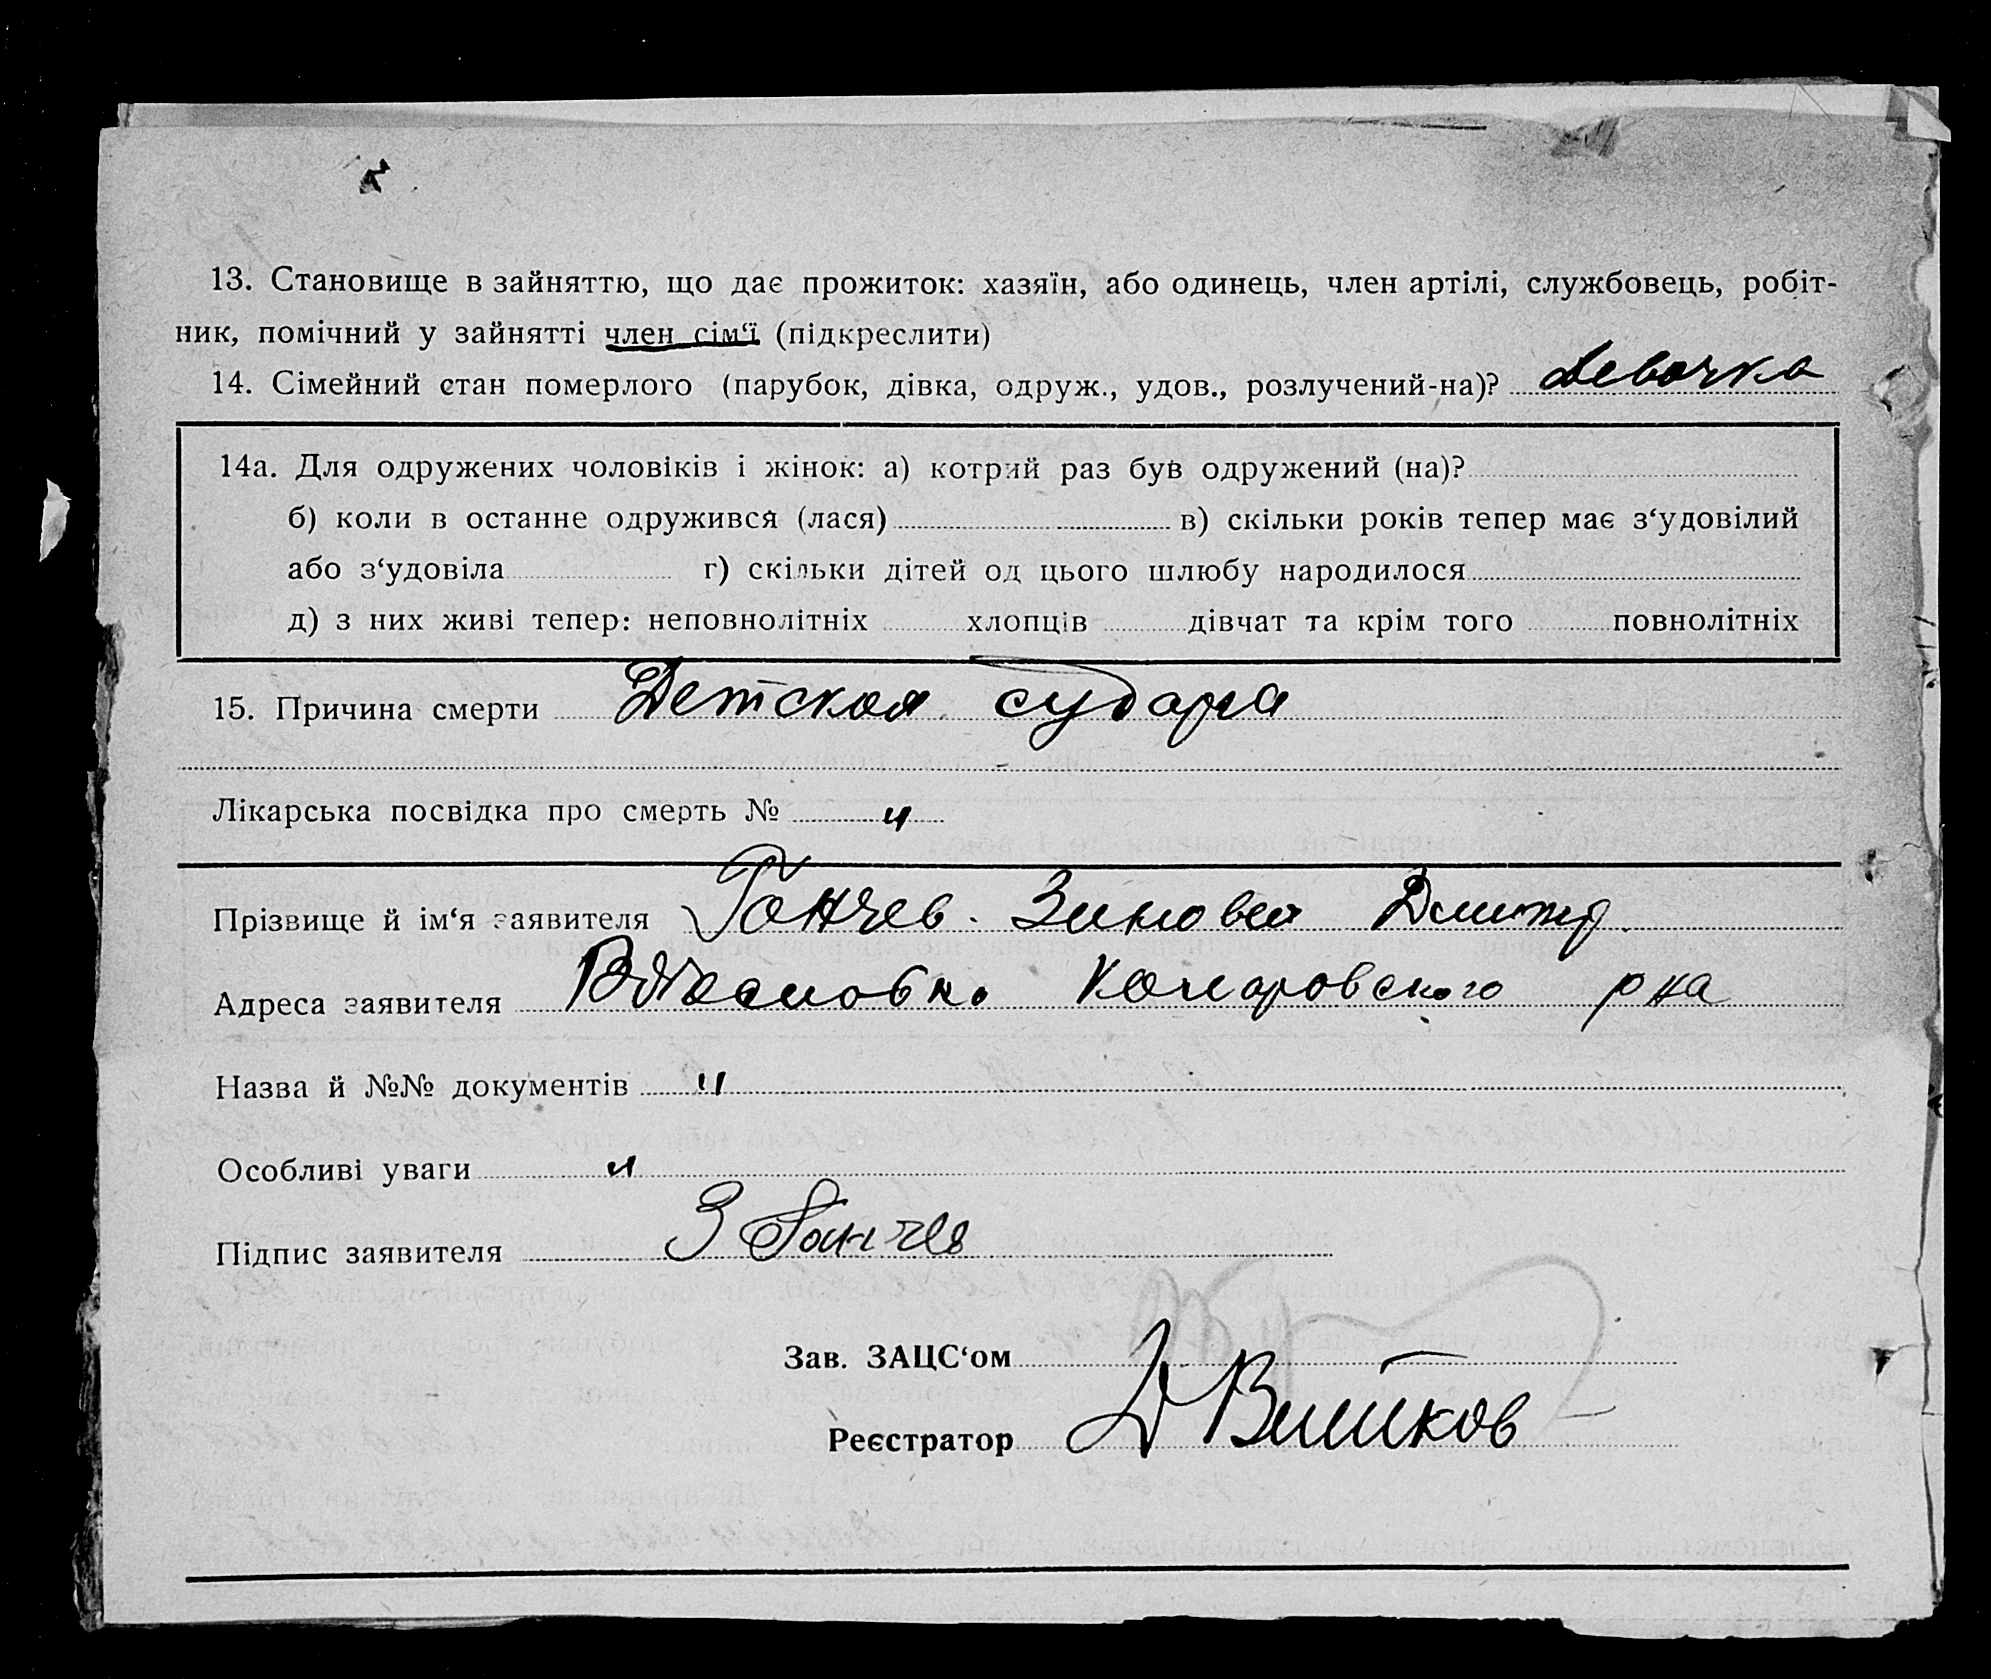 13. Становище в зайняттю, що дає прожиток: хазяїн, або одинець, член артілі, службовець, робіт-
ник, помічний у зайнятті член сім‘ї (підкреслити)
14. Сімейний стан померлого (парубок, дівка, одруж., удов., розлучений-на)? Девочка
14а. Для одружених чоловіків і жінок: а) котрий раз був одружений (на)?
б) коли в останне одружився (лася) в) скільки років тепер має з‘удовілий
або з‘удовіла г) скільки дітей од цього шлюбу народилося
д) з них живі тепер: неповнолітніх хлопців дівчат та крім того повнолітніх
15. Причина смерти Детская
Лікарська посвідка про смерть № "
Прізвище й ім‘я заявителя Ганчев Зиновей Дмитр.
Адреса заявителя Комаровского рна
Назва й №№ документів "
Особливі уваги "
Підпис заявителя З Ганчев
Зав. ЗАЦС‘ом
Реєстратор